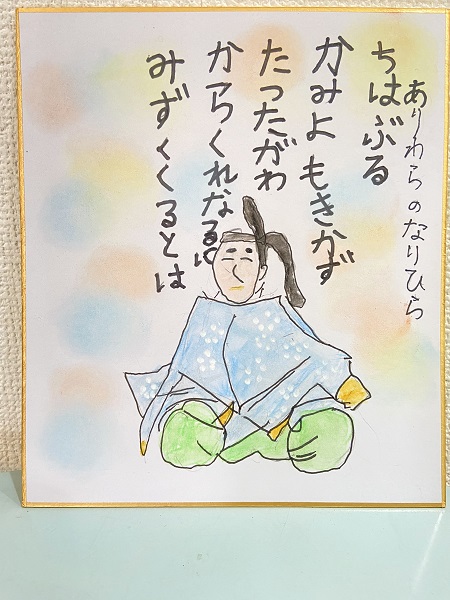 ありわらのなりひら
ちはぶる
かみよ もきかず
たったがわ
からくれなゐに
みずくくるとは